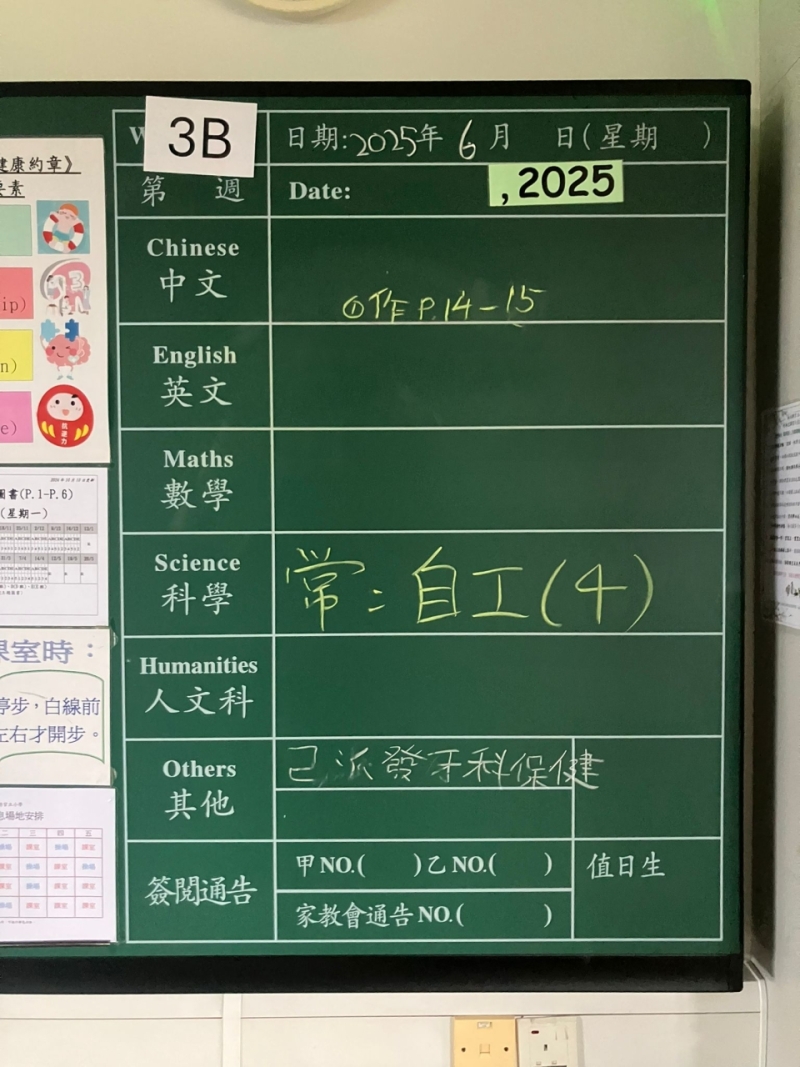 3B
日期:2025年 6月 日(星期 )
第 週
Date: , 2025
Chinese
中文
①作 P.14-15
English
英文
Maths
數學
Science
科學
常：自工(4)
Humanities
人文科
Others
其他
已派發牙科保健
簽閱通告
甲NO.( )乙NO.( )
值日生
家教會通告NO.( )
健康約章》
要素
ip)
n)
e)
圖書(P.1-P.6)
(星期一)
課室時：
停步，白線前
左右才開步。
息場地安排
二 三 四 五